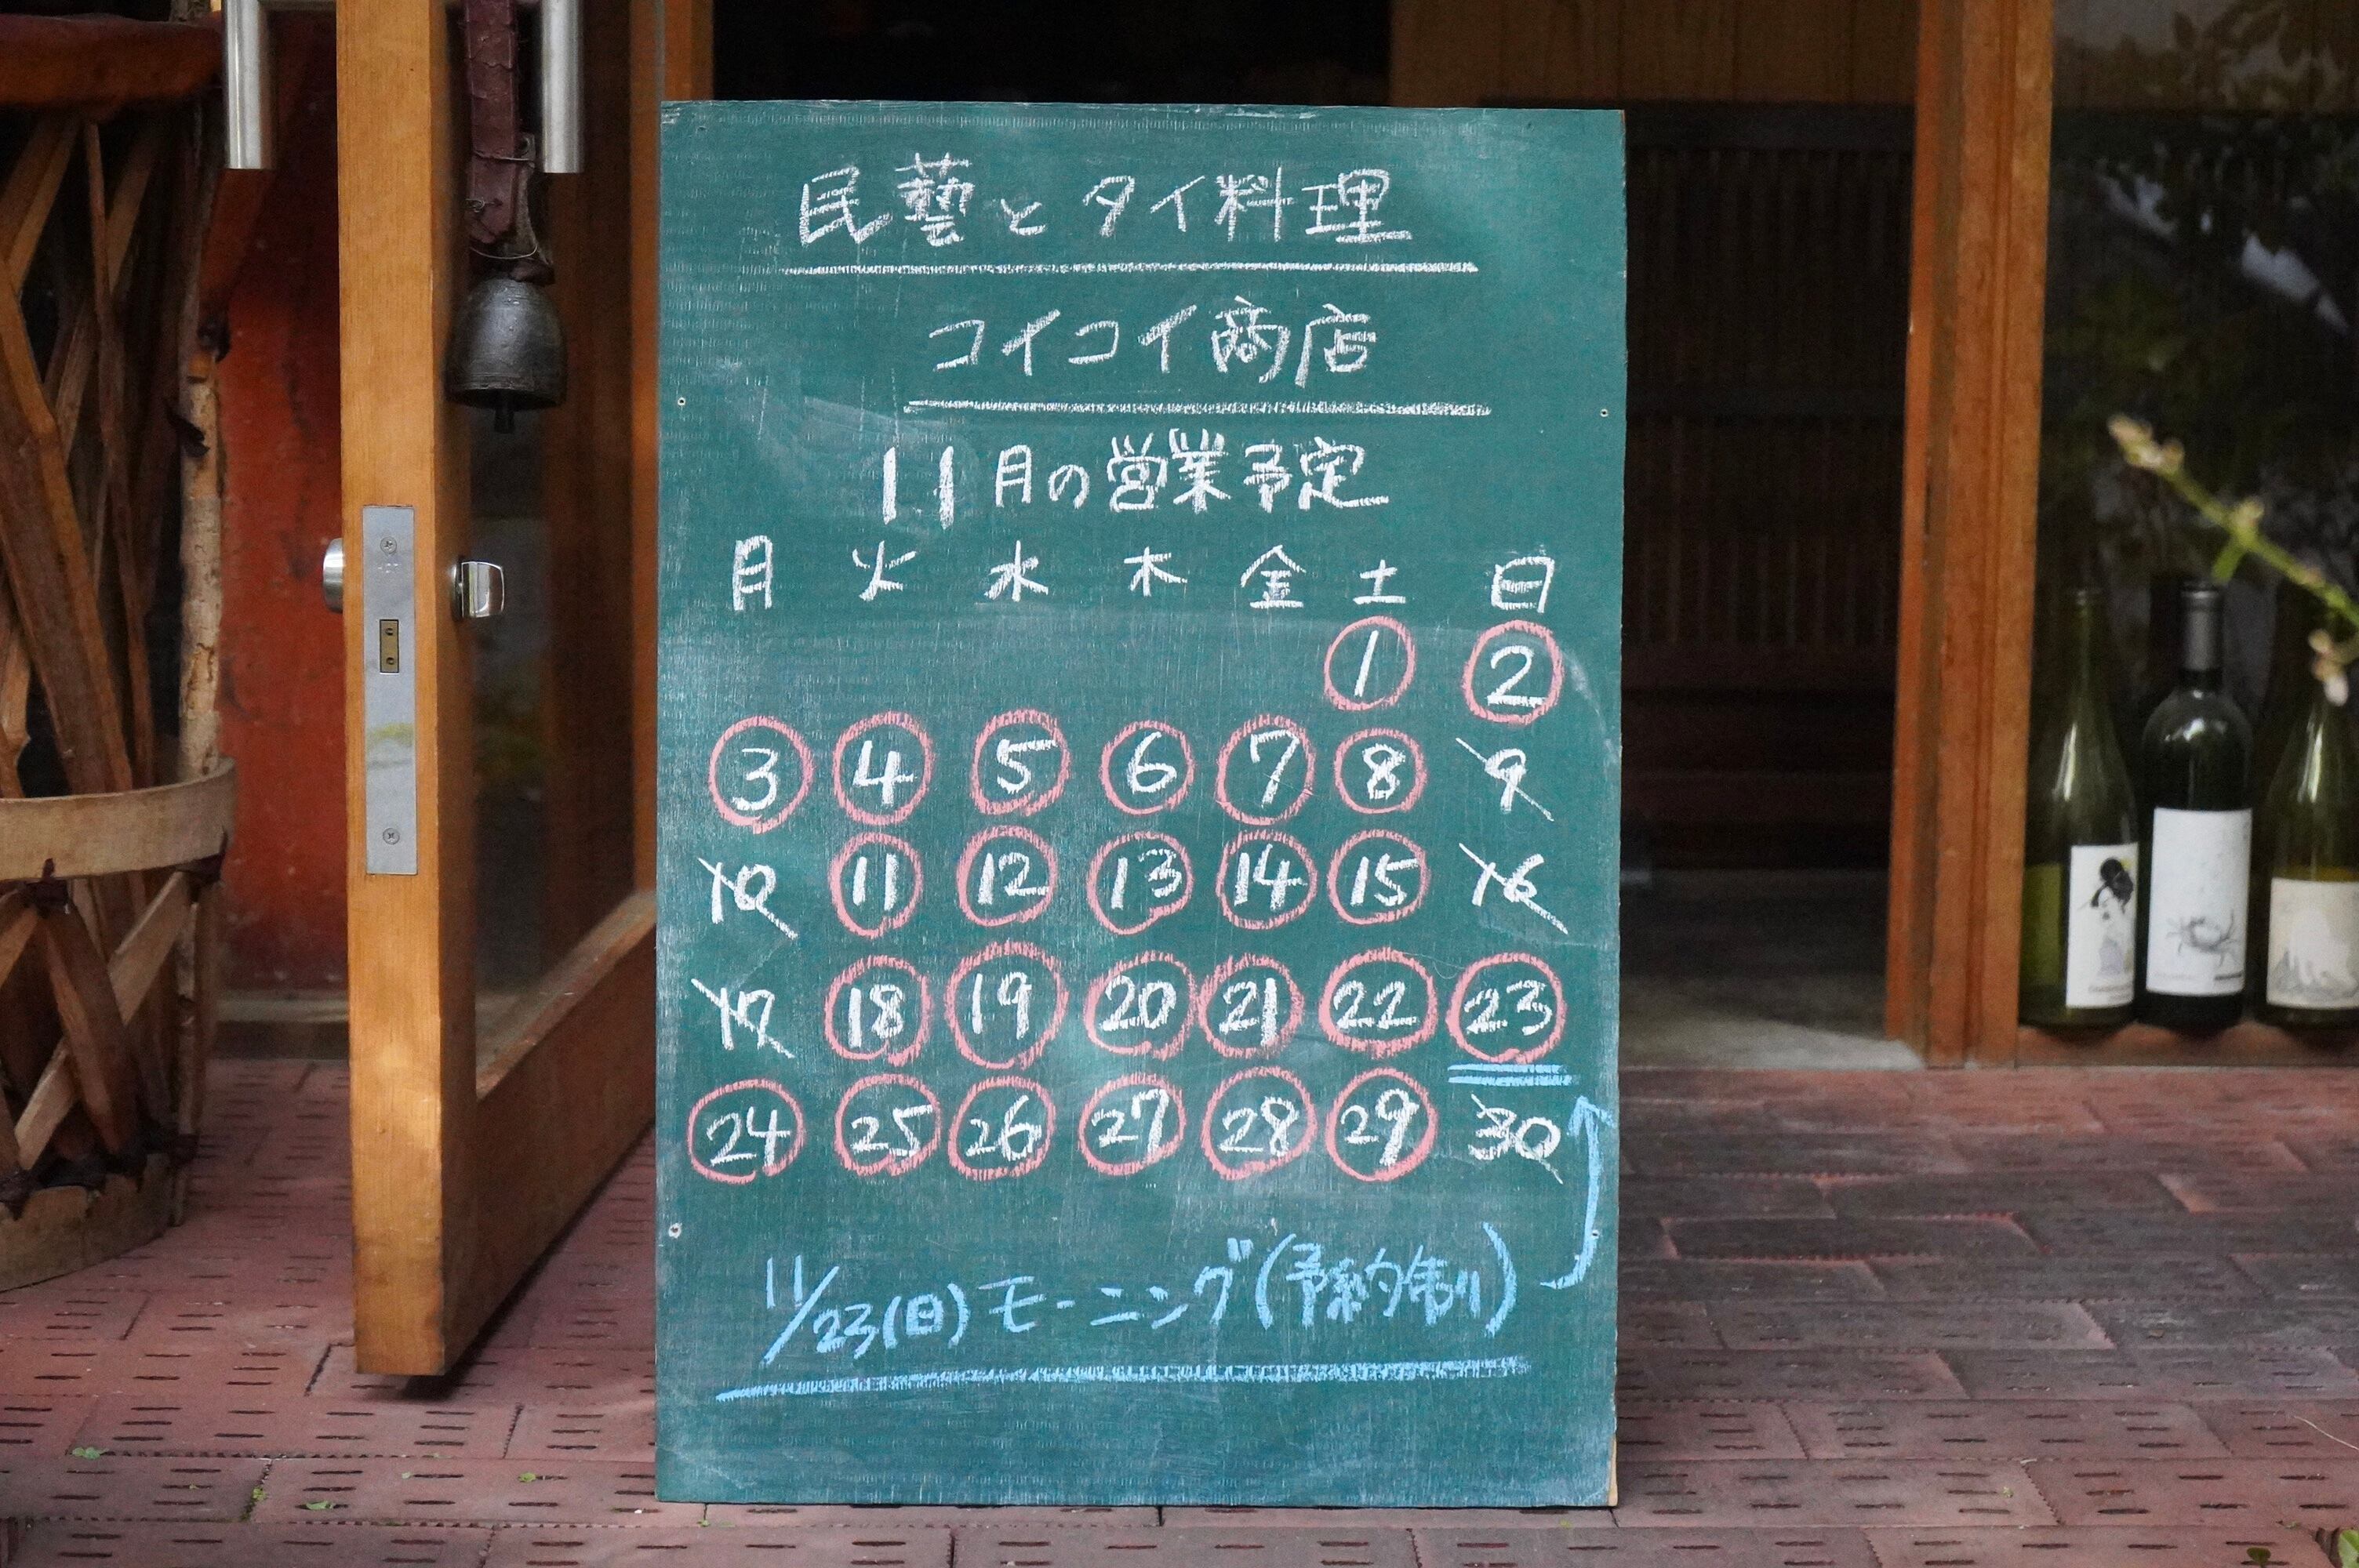 民藝とタイ料理
コイコイ商店
11月の営業予定
月 火 水 木 金 土 日
1 2
3 4 5 6 7 8 9
10 11 12 13 14 15 16
17 18 19 20 21 22 23
24 25 26 27 28 29 30
11/23(日)モーニング(予約制)